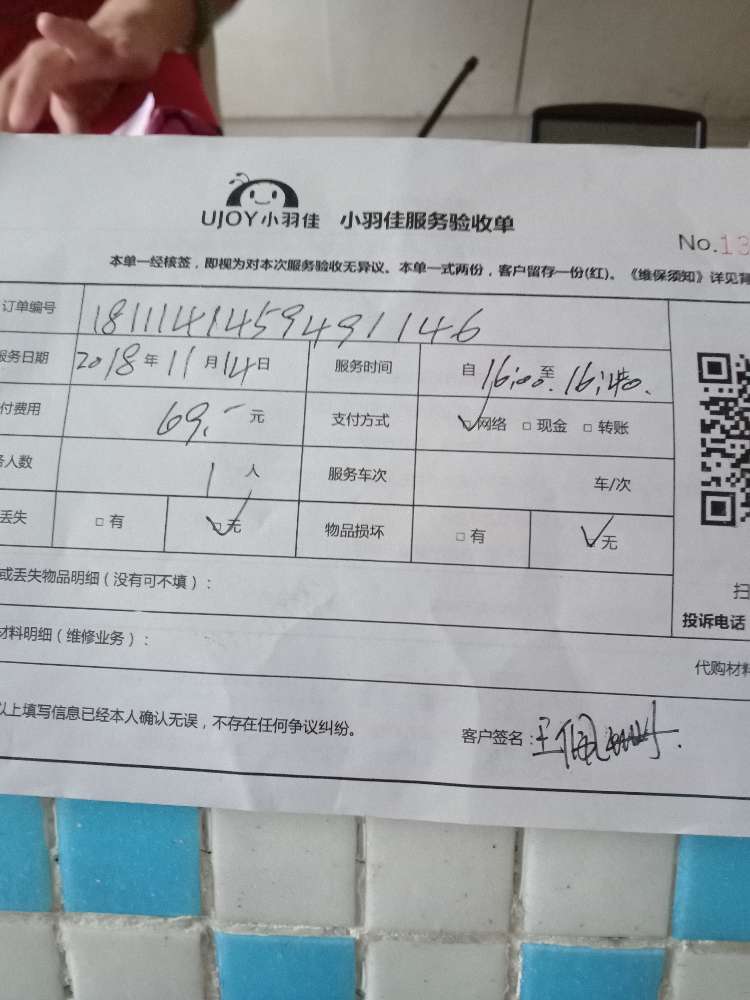 UJOY小羽佳 小羽佳服务验收单
No.13
本单一经核签，即视为对本次服务验收无异议。本单一式两份，客户留存一份(红)。《维保须知》详见背
订单编号 181114145949​1146
服务日期 2018年11月14日 服务时间 自16:00至16:40.
付费用 69.- 元 支付方式 □网络 □现金 □转账
务人数 1人 服务车次 车/次
丢失 □有 □无 物品损坏 □有 □无
或丢失物品明细（没有可不填）：
扫
投诉电话
材料明细（维修业务）：
代购材料
以上填写信息已经本人确认无误，不存在任何争议纠纷。
客户签名：王